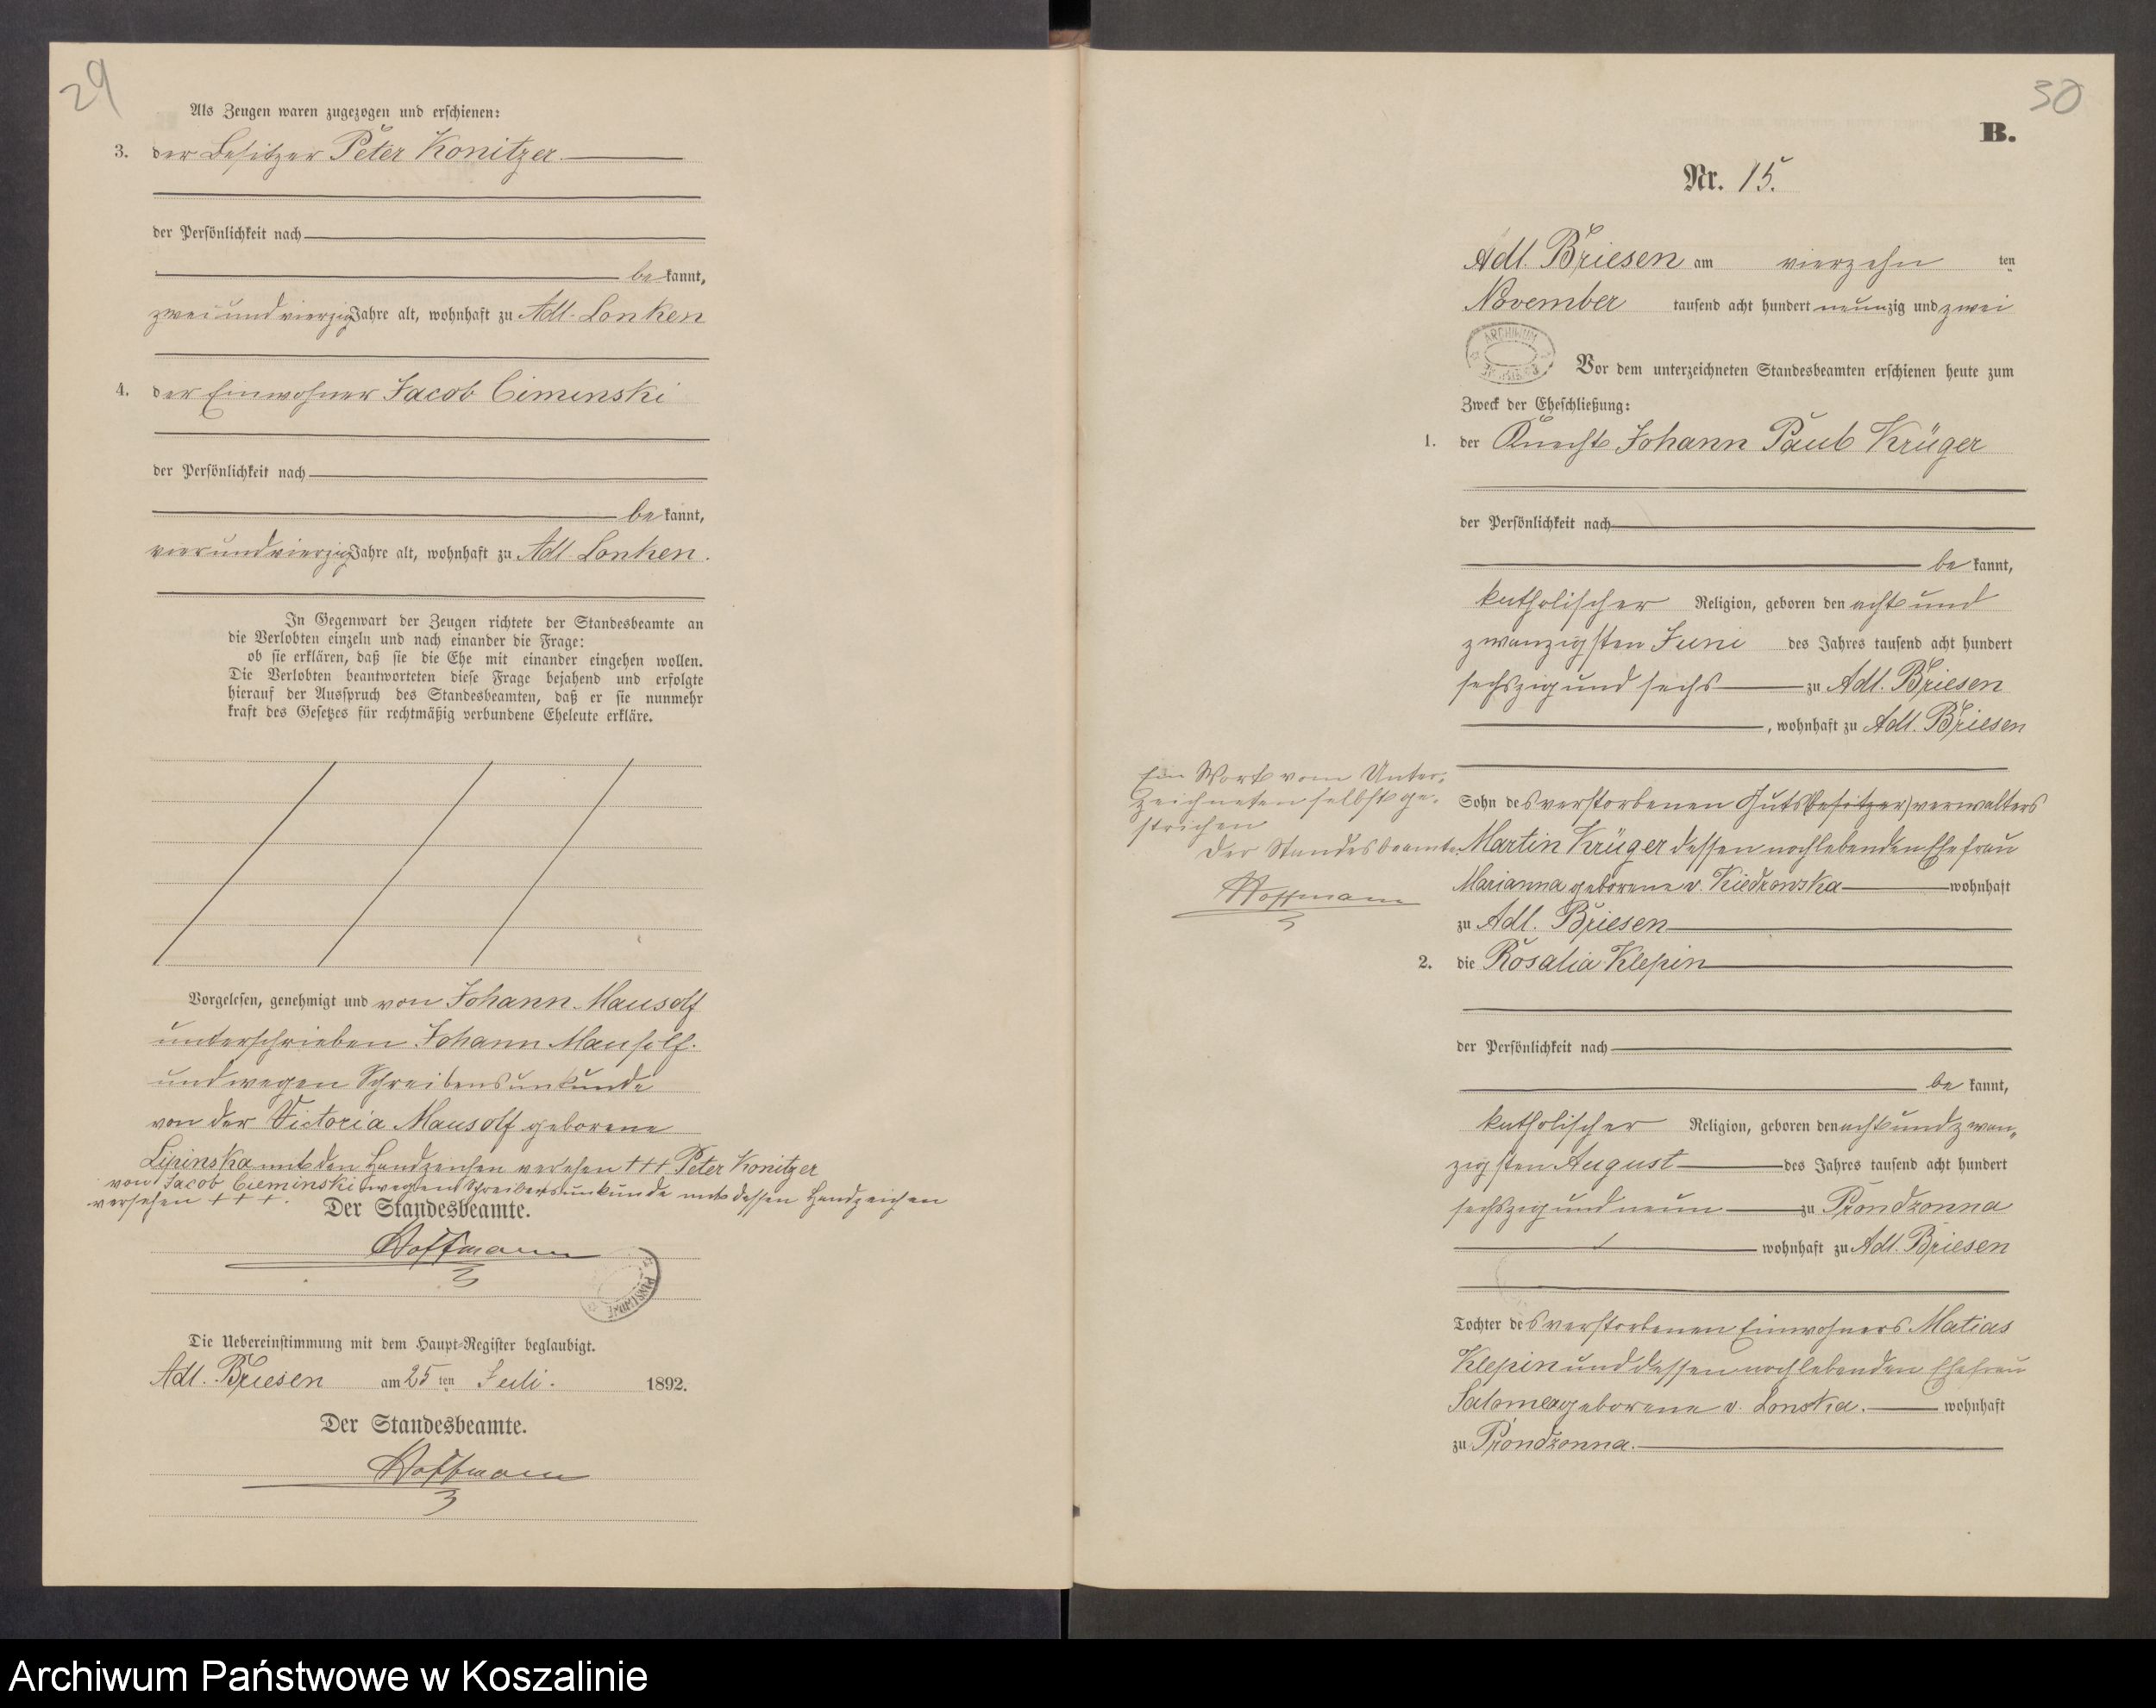 29
Als Zeugen waren zugezogen und erschienen:
3. der Besitzer Peter Konitzer.
der Persönlichkeit nach
be kannt,
zwei und vierzig Jahre alt, wohnhaft zu Adl. Lonken
4. der Einwohner Jacob Ciminski
der Persönlichkeit nach
be kannt,
vier und vierzig Jahre alt, wohnhaft zu Adl. Lonken.
In Gegenwart der Zeugen richtete der Standesbeamte an
die Verlobten einzeln und nach einander die Frage:
ob sie erklären, daß sie die Ehe mit einander eingehen wollen.
Die Verlobten beantworteten diese Frage bejahend und erfolgte
hierauf der Ausspruch des Standesbeamten, daß er sie nunmehr
kraft des Gesetzes für rechtmäßig verbundene Eheleute erkläre.
Vorgelesen, genehmigt und von Johann Mausolf
unterschrieben Johann Mausolf.
und wegen Schreibensunkunde
von der Victoria Mausolf geborene
Lipinska mit den Handzeichen versehen +++ Peter Konitzer
von Jacob Cieminski wegen Schreibensunkunde mit dessen Handzeichen
versehen + + +.
Der Standesbeamte.
Hoffmann
Die Uebereinstimmung mit dem Haupt-Register beglaubigt.
Adl. Briesen am 25 ten Juli. 1892.
Der Standesbeamte.
Hoffmann
30
B.
Nr. 15.
Adl. Briesen am vierzehn ten
November tausend acht hundert neunzig und zwei
ARCHIWUM
Vor dem unterzeichneten Standesbeamten erschienen heute zum
Zweck der Eheschließung:
1. der Knecht Johann Paul Krüger
der Persönlichkeit nach
be kannt,
katholischer Religion, geboren den acht und
zwanzigsten Juni des Jahres tausend acht hundert
sechszig und sechs zu Adl. Briesen
, wohnhaft zu Adl. Briesen
Ein Wort vom Unter-
zeichneten selbst ge-
strichen
Der Standesbeamte.
Hoffmann
Sohn des verstorbenen Guts(besitzer) verwalters
Martin Krüger dessen noch lebenden Ehefrau
Marianna geborene v. Kiedrowska wohnhaft
zu Adl. Briesen
2. die Rosalia Klepin
der Persönlichkeit nach
be kannt,
katholischer Religion, geboren den acht und zwan-
zigsten August des Jahres tausend acht hundert
sechszig und neun zu Prondzonna
wohnhaft zu Adl. Briesen
Tochter des verstorbenen Einwohners Matias
Klepin und dessen noch lebenden Ehefrau
Salomea geborene v. Lonska. wohnhaft
zu Prondzonna.
Archiwum Państwowe w Koszalinie